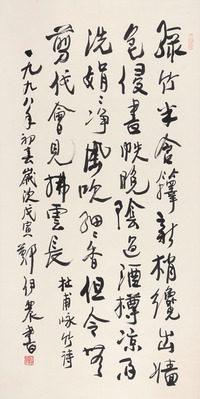 綠竹半含籜新梢纔出墙
色侵書帙晚陰過酒樽凉雨
洗娟々淨風吹細々香但令無
剪伐會見拂雲長
杜甫咏竹詩
一九九八年初春歲次戊寅鄭伯農書